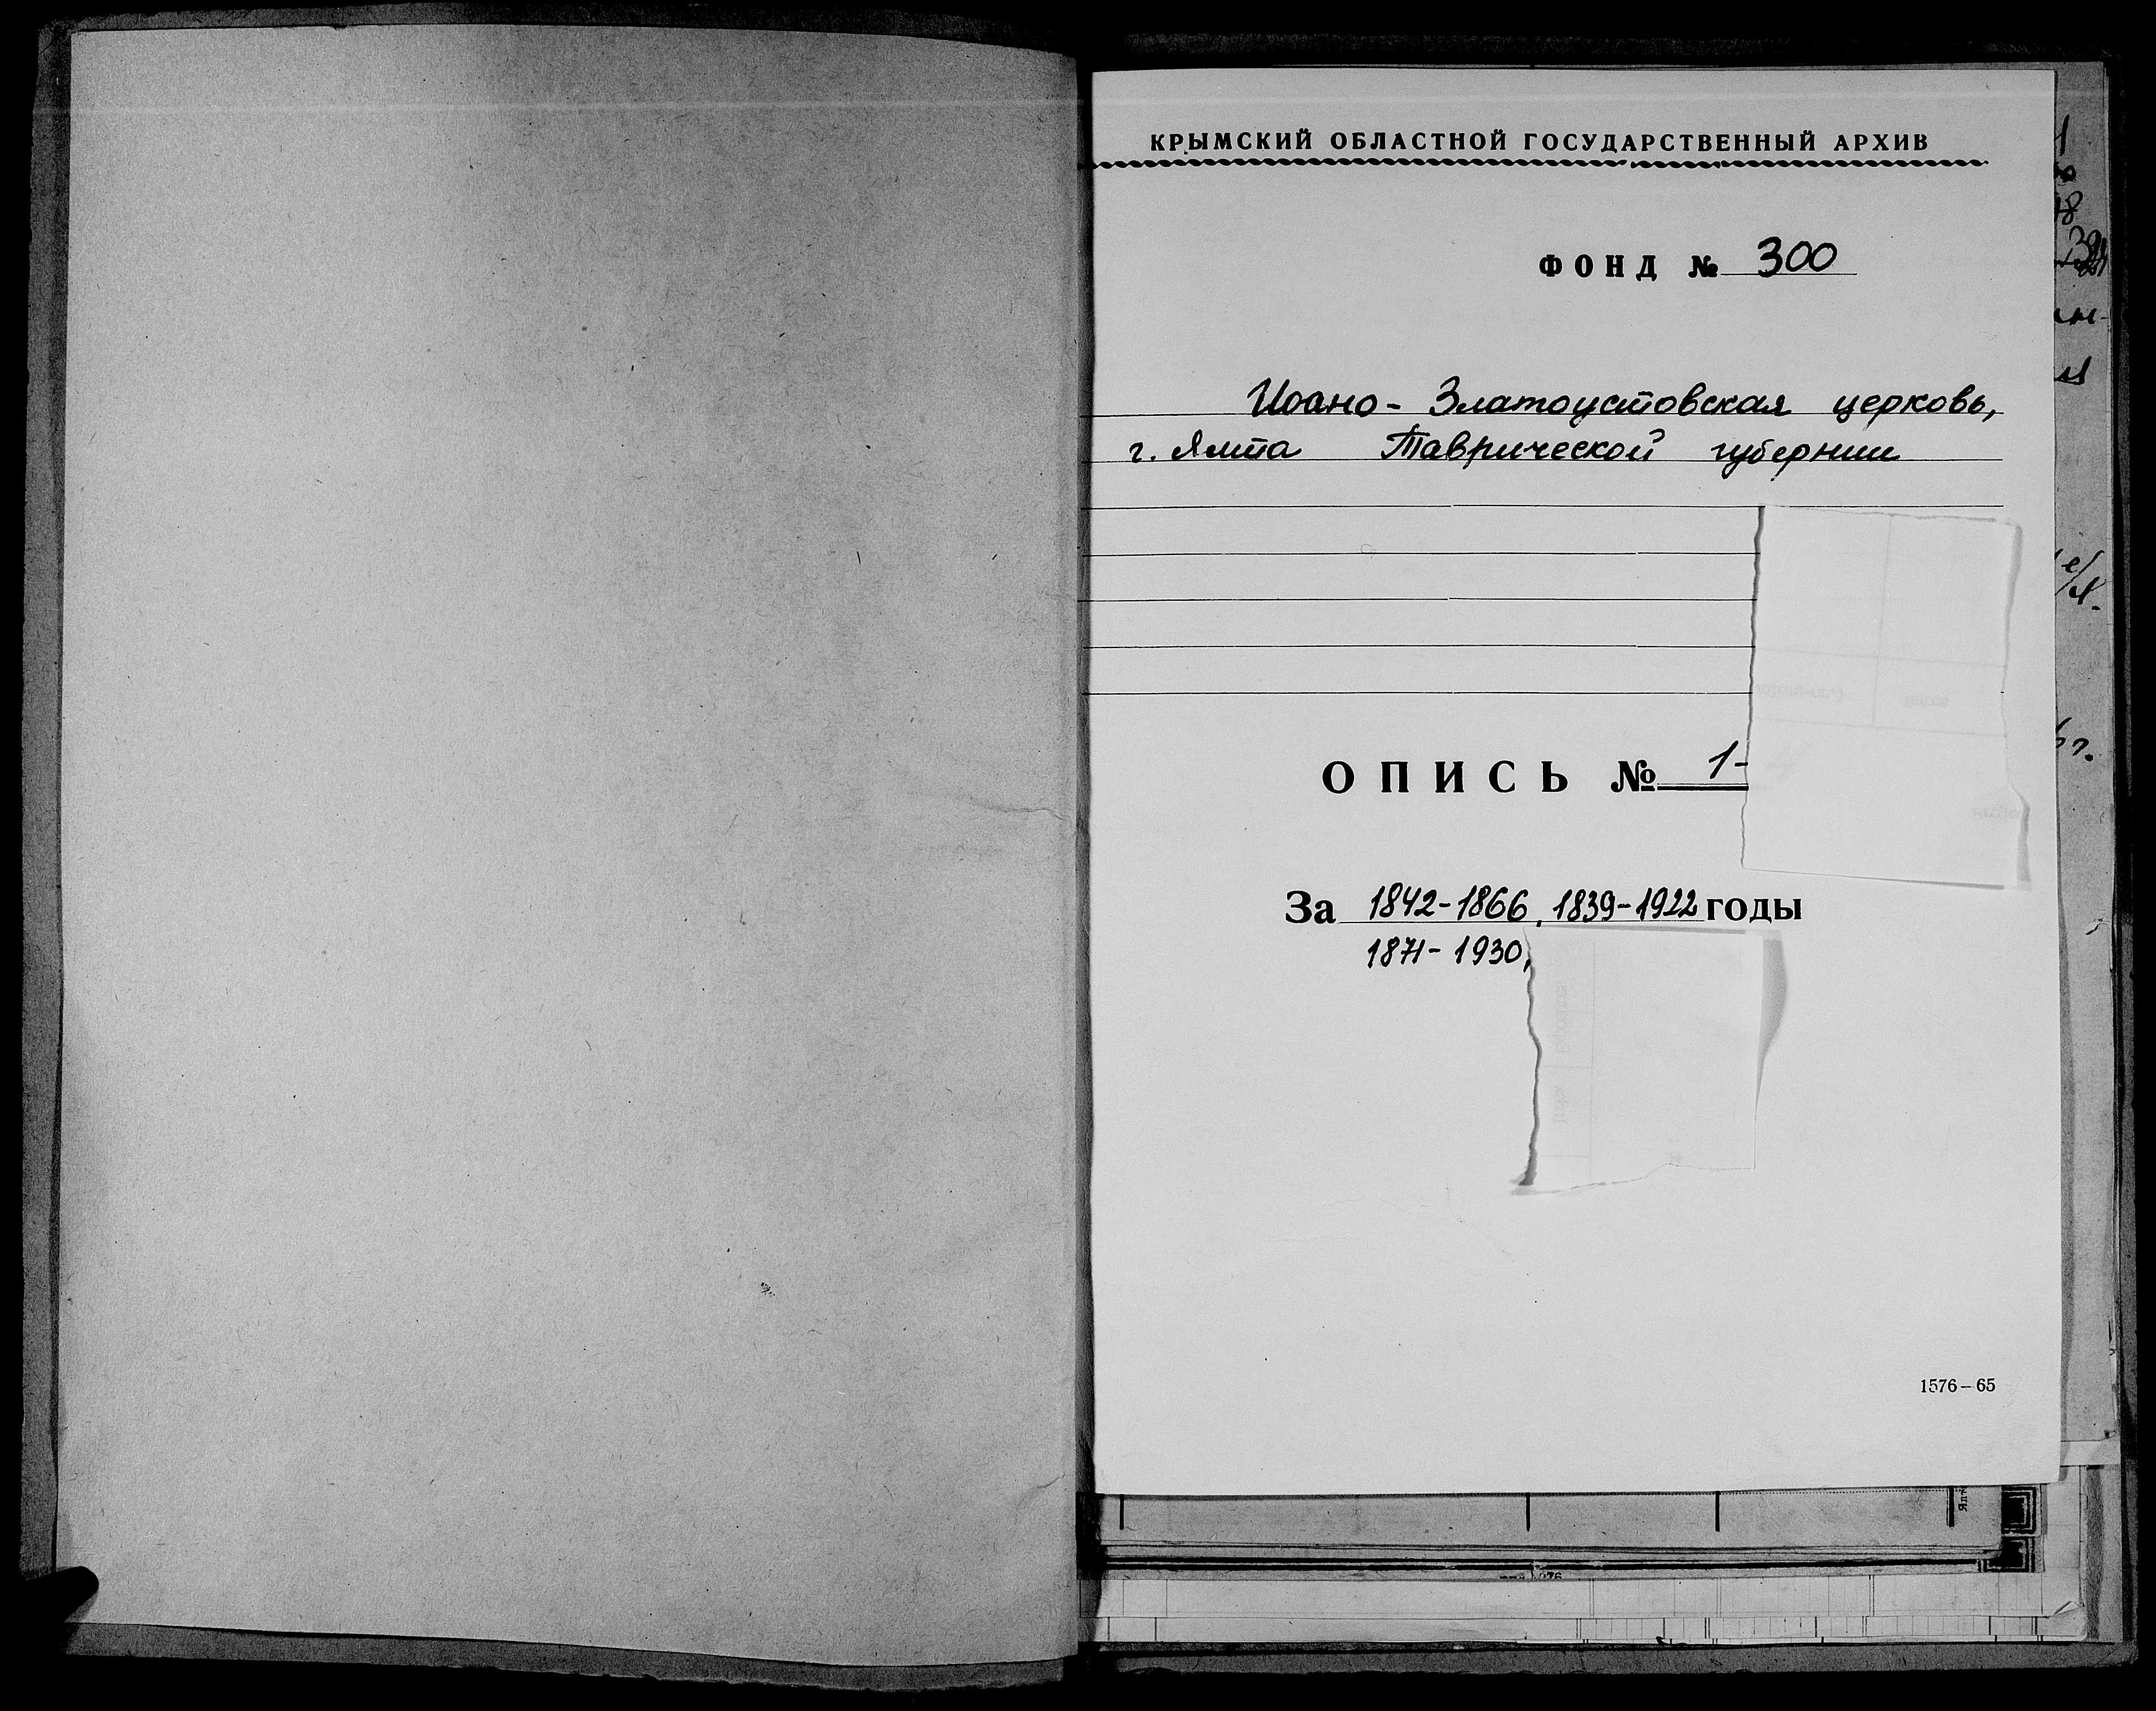 КРЫМСКИЙ ОБЛАСТНОЙ ГОСУДАРСТВЕННЫЙ АРХИВ
ФОНД № 300
Иоано-Златоустовская церковь,
г. Ялта Таврической губернии
ОПИСЬ № 1-
За 1842-1866, 1839-1922 годы
1871-1930,
1576-65